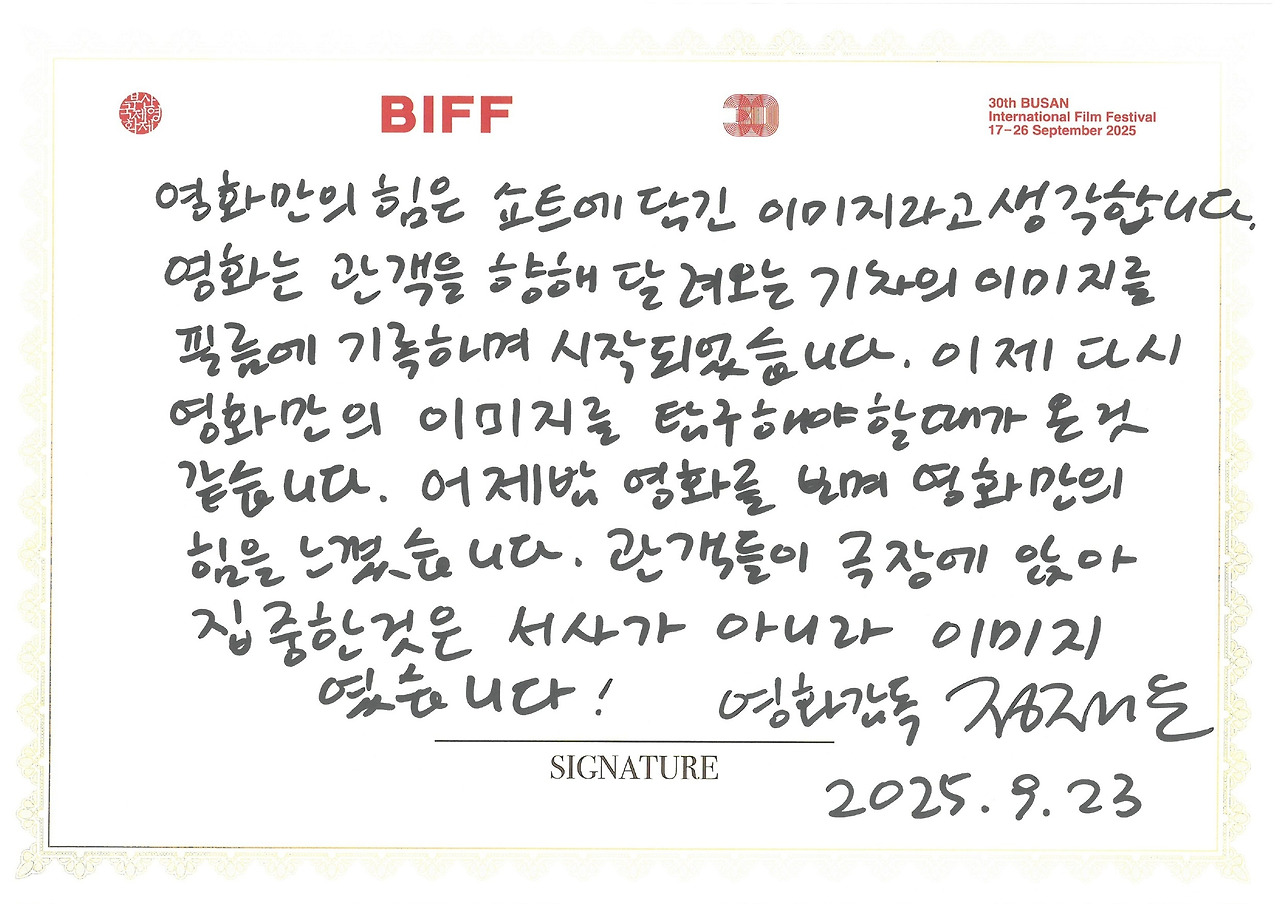 부산국제영화제
BIFF
30
30th BUSAN
International Film Festival
17–26 September 2025
영화만의 힘은 쇼트에 담긴 이미지라고 생각합니다.
영화는 관객을 향해 달려오는 기차의 이미지를
필름에 기록하며 시작되었습니다. 이제 다시
영화만의 이미지를 탐구해야할때가 온것
같습니다. 어제밤 영화를 보며 영화만의
힘을 느꼈습니다. 관객들이 극장에 앉아
집중한것은 서사가 아니라 이미지
였습니다! 영화감독 정재은
SIGNATURE
2025.9.23